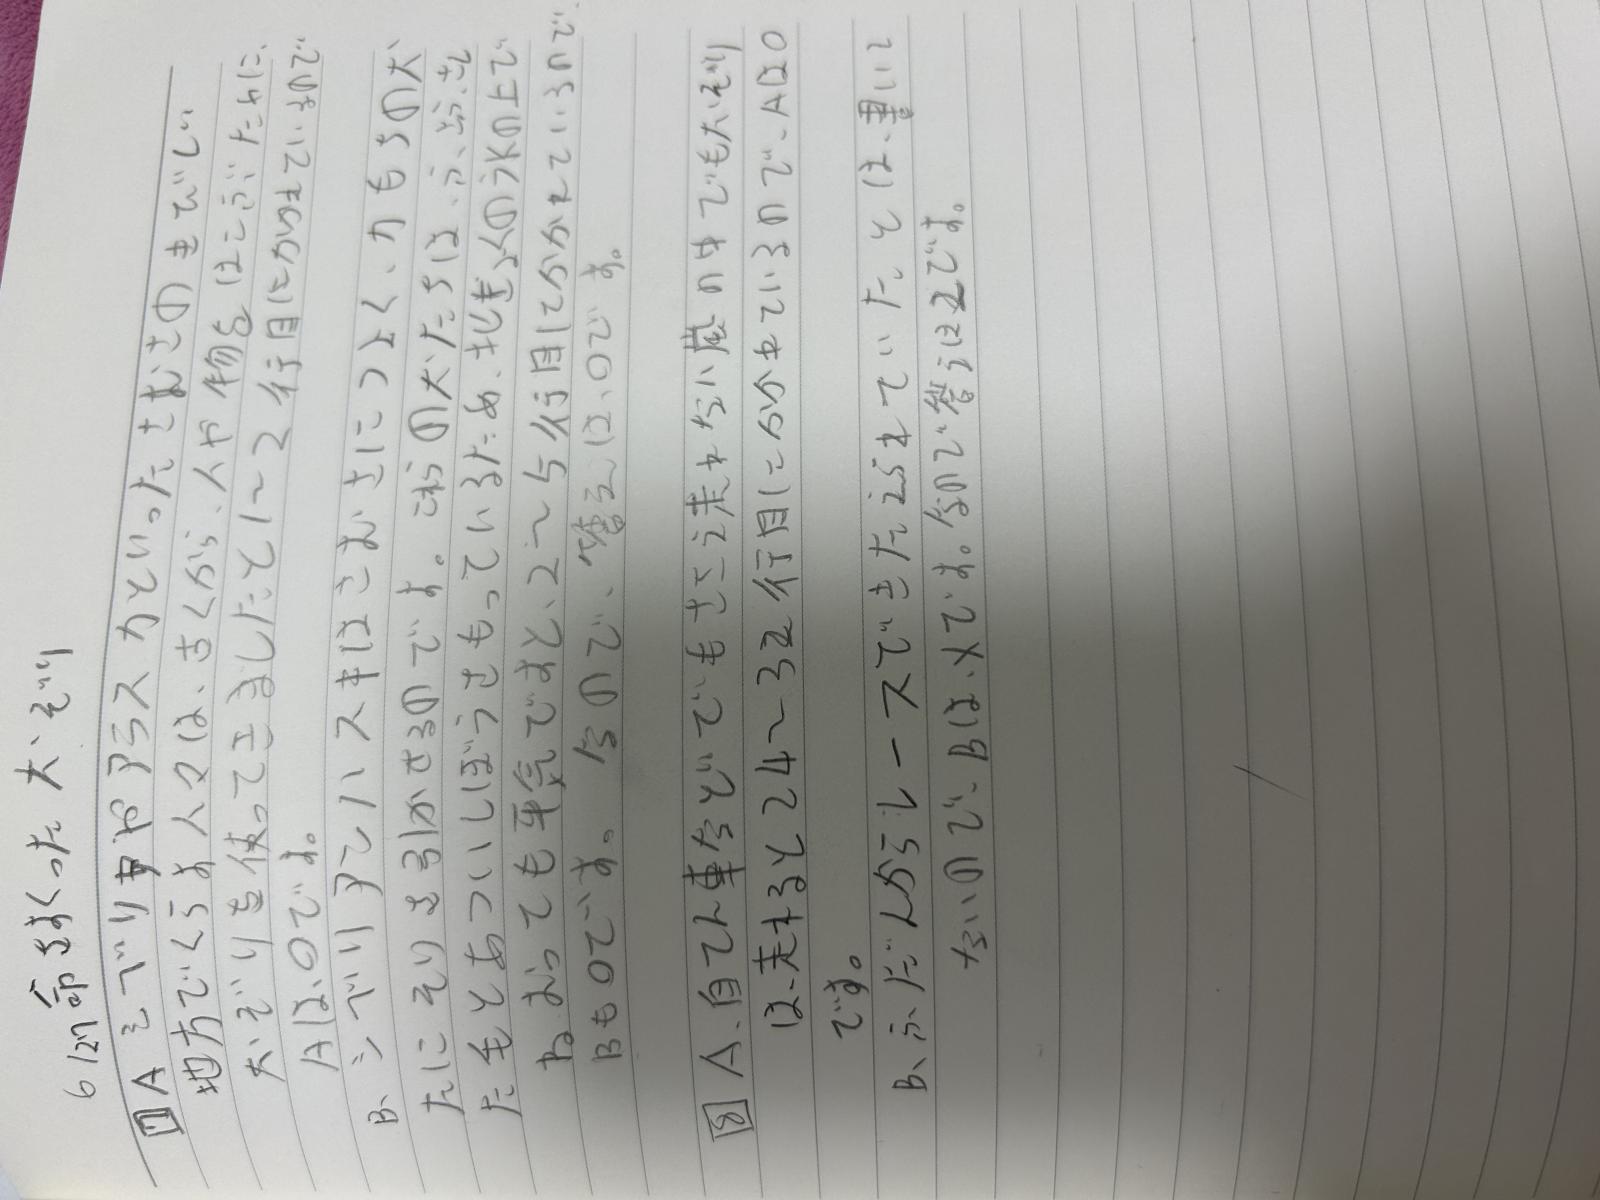 6/27 命をすくった犬ぞり
1 A シベリヤやアラスカといったさむさのきびしい
地方でくらす人々は、古くから、人や物をはこぶために、
犬ぞりを使ってきましたと1〜2行目にかかれているので
Aは、○です。
B、シベリアてハスキはさむさにつよく、力もちの犬
たにそりをひかせるのです。これらの犬たちは、ふ、ぶ、と
た毛とあついしぼうをもっているため、北きょくの氷の上で
ねむっても平気ですと、2〜5行目にかかれているので、
Bも○です。なので、答えは、○です。
8 A、自てん車などでもさえ走れない底の中でも犬ぞり
は、走れると24〜32行目にかかれているので、Aは○
です。
B、ふだんからレースできたえられていたとは、書いて
ないので、Bは、×です。なので答えはえです。